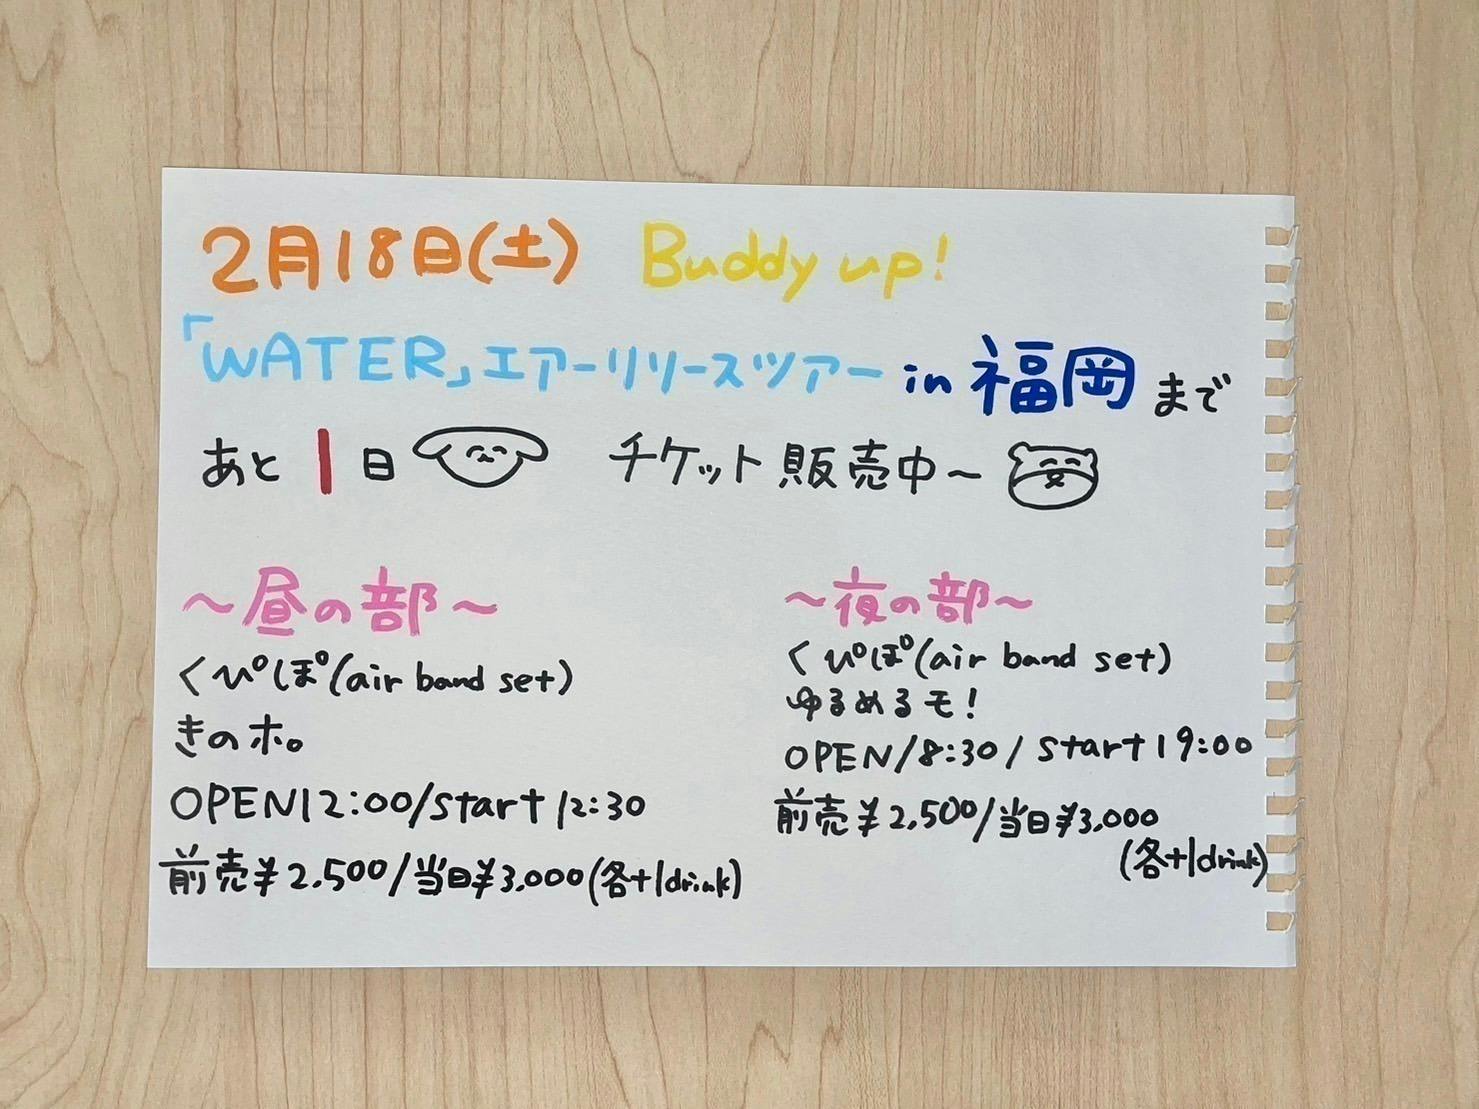 2月18日(土) Buddy up!
「WATER」エアーリリースツアー in 福岡 まで
あと 1 日 チケット 販売中〜
〜昼の部〜
くぴぽ(air band set)
きのホ。
OPEN12:00/start 12:30
前売¥2,500/当日¥3,000(各+1drink)
〜夜の部〜
くぴぽ(air band set)
ゆるめるモ!
OPEN18:30/start 19:00
前売¥2,500/当日¥3,000
(各+1drink)